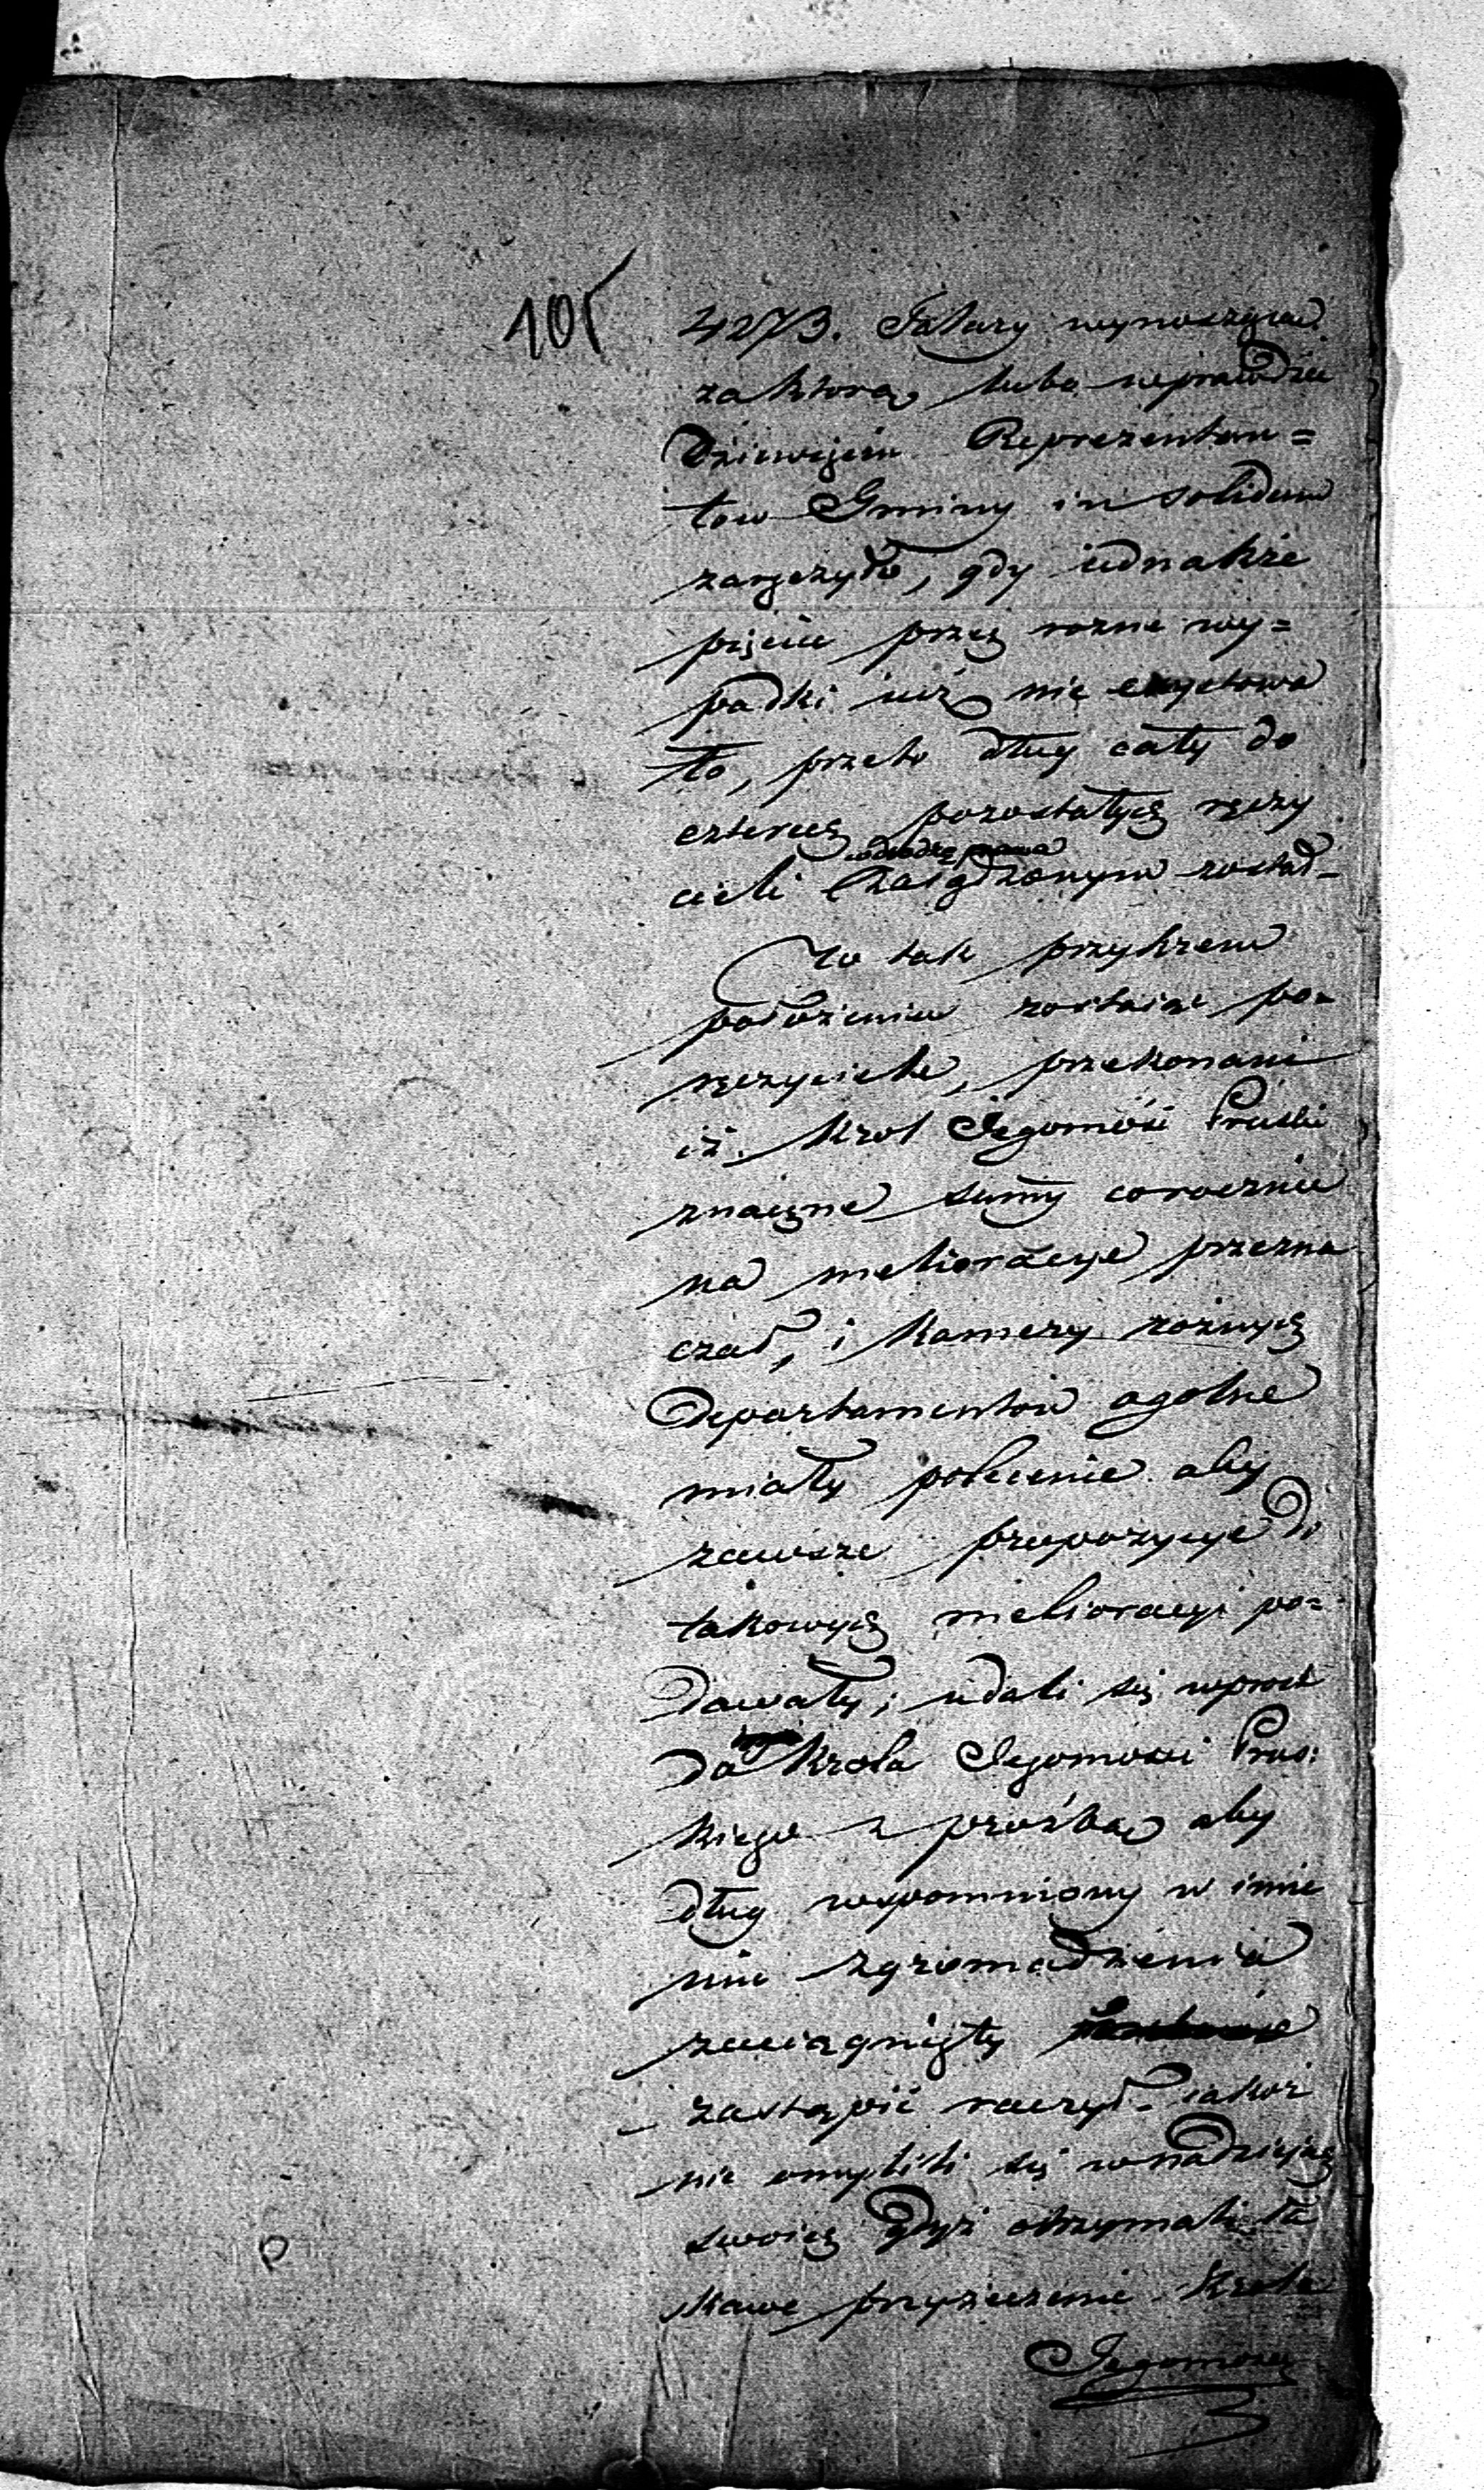 105
4273. Talary wynosząca
za ktorą lubo wprawdzie
Dziewięciu Reprezentan=
tow Gminy in solidum
zaręczyło, gdy iednakże
pięciu przez rozne wy=
padki iuż nie exystowa
ło, przeto dług cały do
czterech pozostałych ręczy
cieli zasądzonym został_
W tak przykrem
położeniu zostaiąc po=
ręczyciele, przekonani
iż Krol Jegomość Pruski
znaczne sumy corocznie
na melioracye przezna
czał, i Kamery roznych
Departamentow ogolne
miały polecenie aby
zawsze propozycye do
takowych melioracyi po=
dawały; udali się wprost
do Krola Jegomosci Prus:
kiego z prośbą aby
dług wspomniony w imie
niu zgromadzenia
zaciągnięty
zastąpić raczył_ iakoż
nie omylili się w nadziejach
swoich gdyż otrzymali ła
skawe przyrzeczenie Krola
Jegomosci